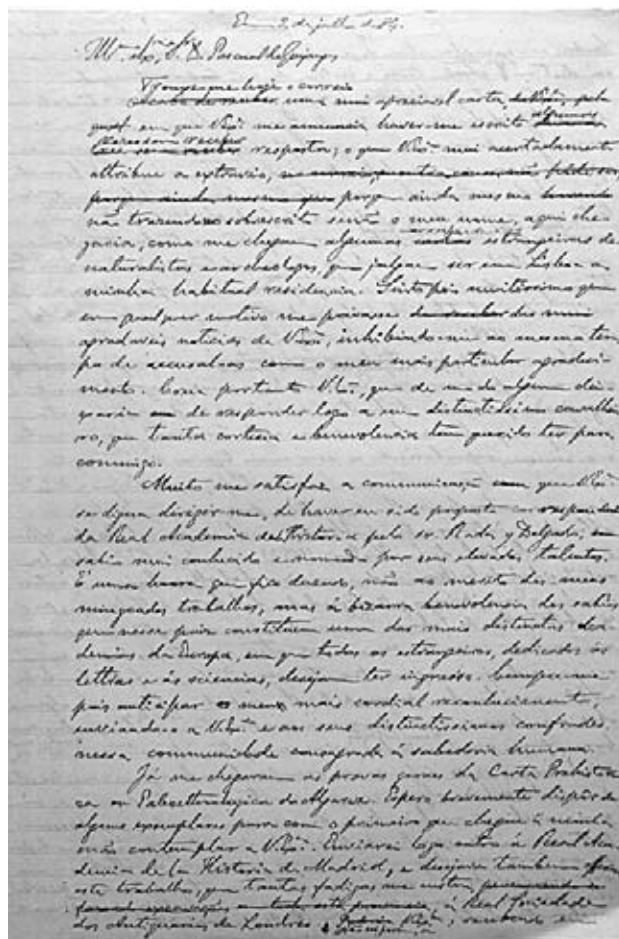 2 de julho de 84.
Sr. D. Pascual de Gayangos
Trouxe-me hoje o correio
uma mui apreciavel carta
em que V. Exa me annuncia haver-me escripto
resposta; o que V. Exa mui acertadamente
attribue a extravio,
porq ainda mesmo
não trazendo sobrescripto senão o meu nome, aqui che-
garia, como me chegam algumas estrangeiras de
naturalistas e archeologos, que julgam ser em Lisboa a
minha habitual residencia. Sinto pois muitissimo que
um qualquer motivo me privasse das mui
agradaveis noticias de V. Exa, inhibindo-me ao mesmo tem-
po de accusal-as com o meu mais particular agradeci-
mento. Creia portanto V. Exa, que de modo algum dei-
xaria de responder logo a um distinctissimo cavalhei-
ro, que tanta cortesia e benevolencia tem querido ter para
commigo.
Muito me satisfaz a communicação que V. Exa
se digna dirigir-me, de haver eu sido proposto correspondente
da Real Academia de Historia pelo sr. Rada y Delgado,
sabio mui conhecido e nomeado por seus elevados talentos.
É uma honra que fico devendo, não ao merito dos meus
minguados trabalhos, mas á bizarra benevolencia dos sabios
que nesse paiz constituem uma das mais distinctas Aca-
demias da Europa, em que todos os estrangeiros, dedicados ás
lettras e ás sciencias, desejam ter ingresso. Cumpre-me
pois anticipar o meu mais cordial reconhecimento,
enviando-o a V. Exa e aos seus distinctissimos confrades
nessa communidade consagrada á sabedoria humana.
Já me chegaram as provas geraes da Carta Prehistori-
ca ou Paleoethnologica do Algarve. Espero brevemente dispôr de
alguns exemplares para com o primeiro que chegue á minha
mão contemplar a V. Exa. Enviarei logo outro á Real Aca-
demia de la Historia de Madrid, e desejaria tambem
este trabalho, que tantas fadigas me custou,
á Real Sociedade
dos Antiquarios de Londres.